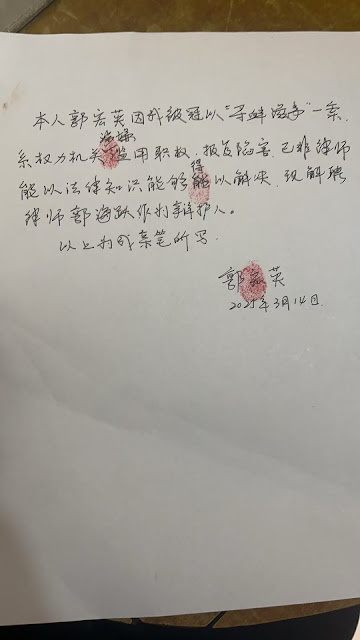 本人郭宏英因我被冠以“寻衅滋事”一案,
系权力机关滥用职权、报复陷害,已非律师
能以法律知识能够得以解决,现解聘
律师郭海跃作为辩护人。
以上为我亲笔所写.
郭宏英
2025年3月14日.